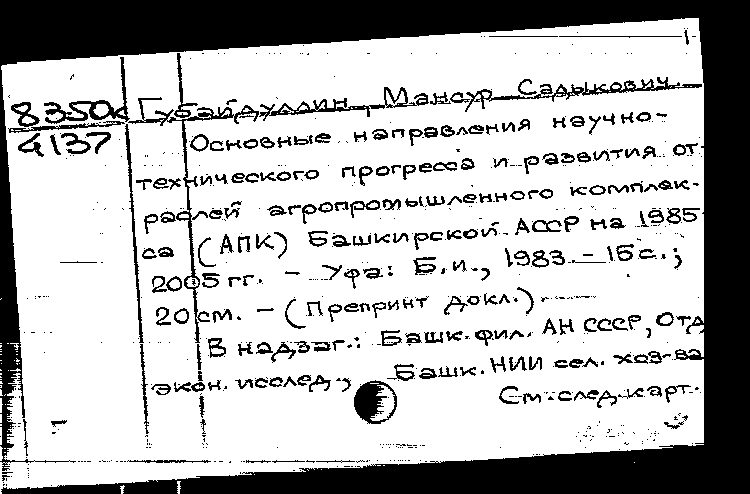 1
8350к Губайдуллин, Мансур Садыкович.
4137 Основные направления научно-
технического прогресса и развития от-
раслей агропромышленного комплек-
са (АПК) Башкирской АССР на 1985-
2005 гг. – Уфа: Б.и., 1983. – 15 с.;
20 см. – (Препринт докл.)
В надзаг.: Башк. фил. АН СССР, Отд.
экон. исслед., Башк. НИИ сел. хоз-ва
См. след. карт.